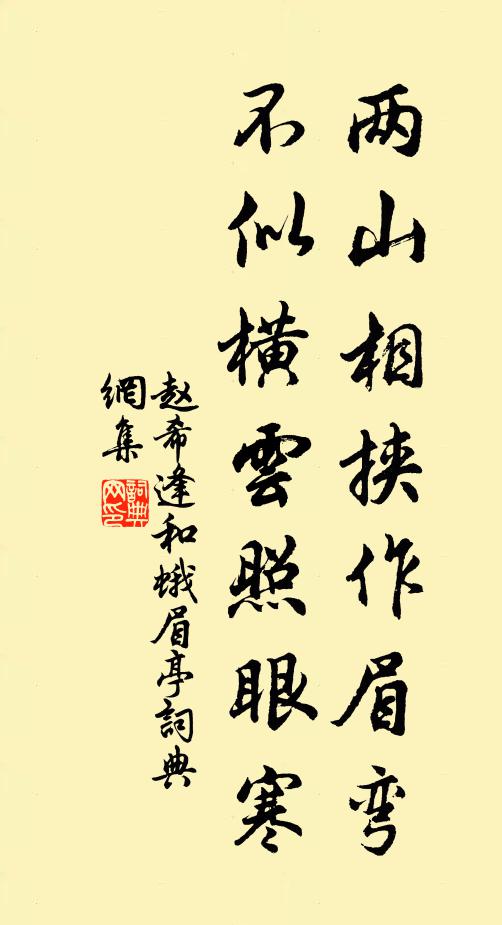 两山相挟作眉弯
不似横雲照眼寒
赵希逢和蛾眉亭詞典
網集
詞典
网印